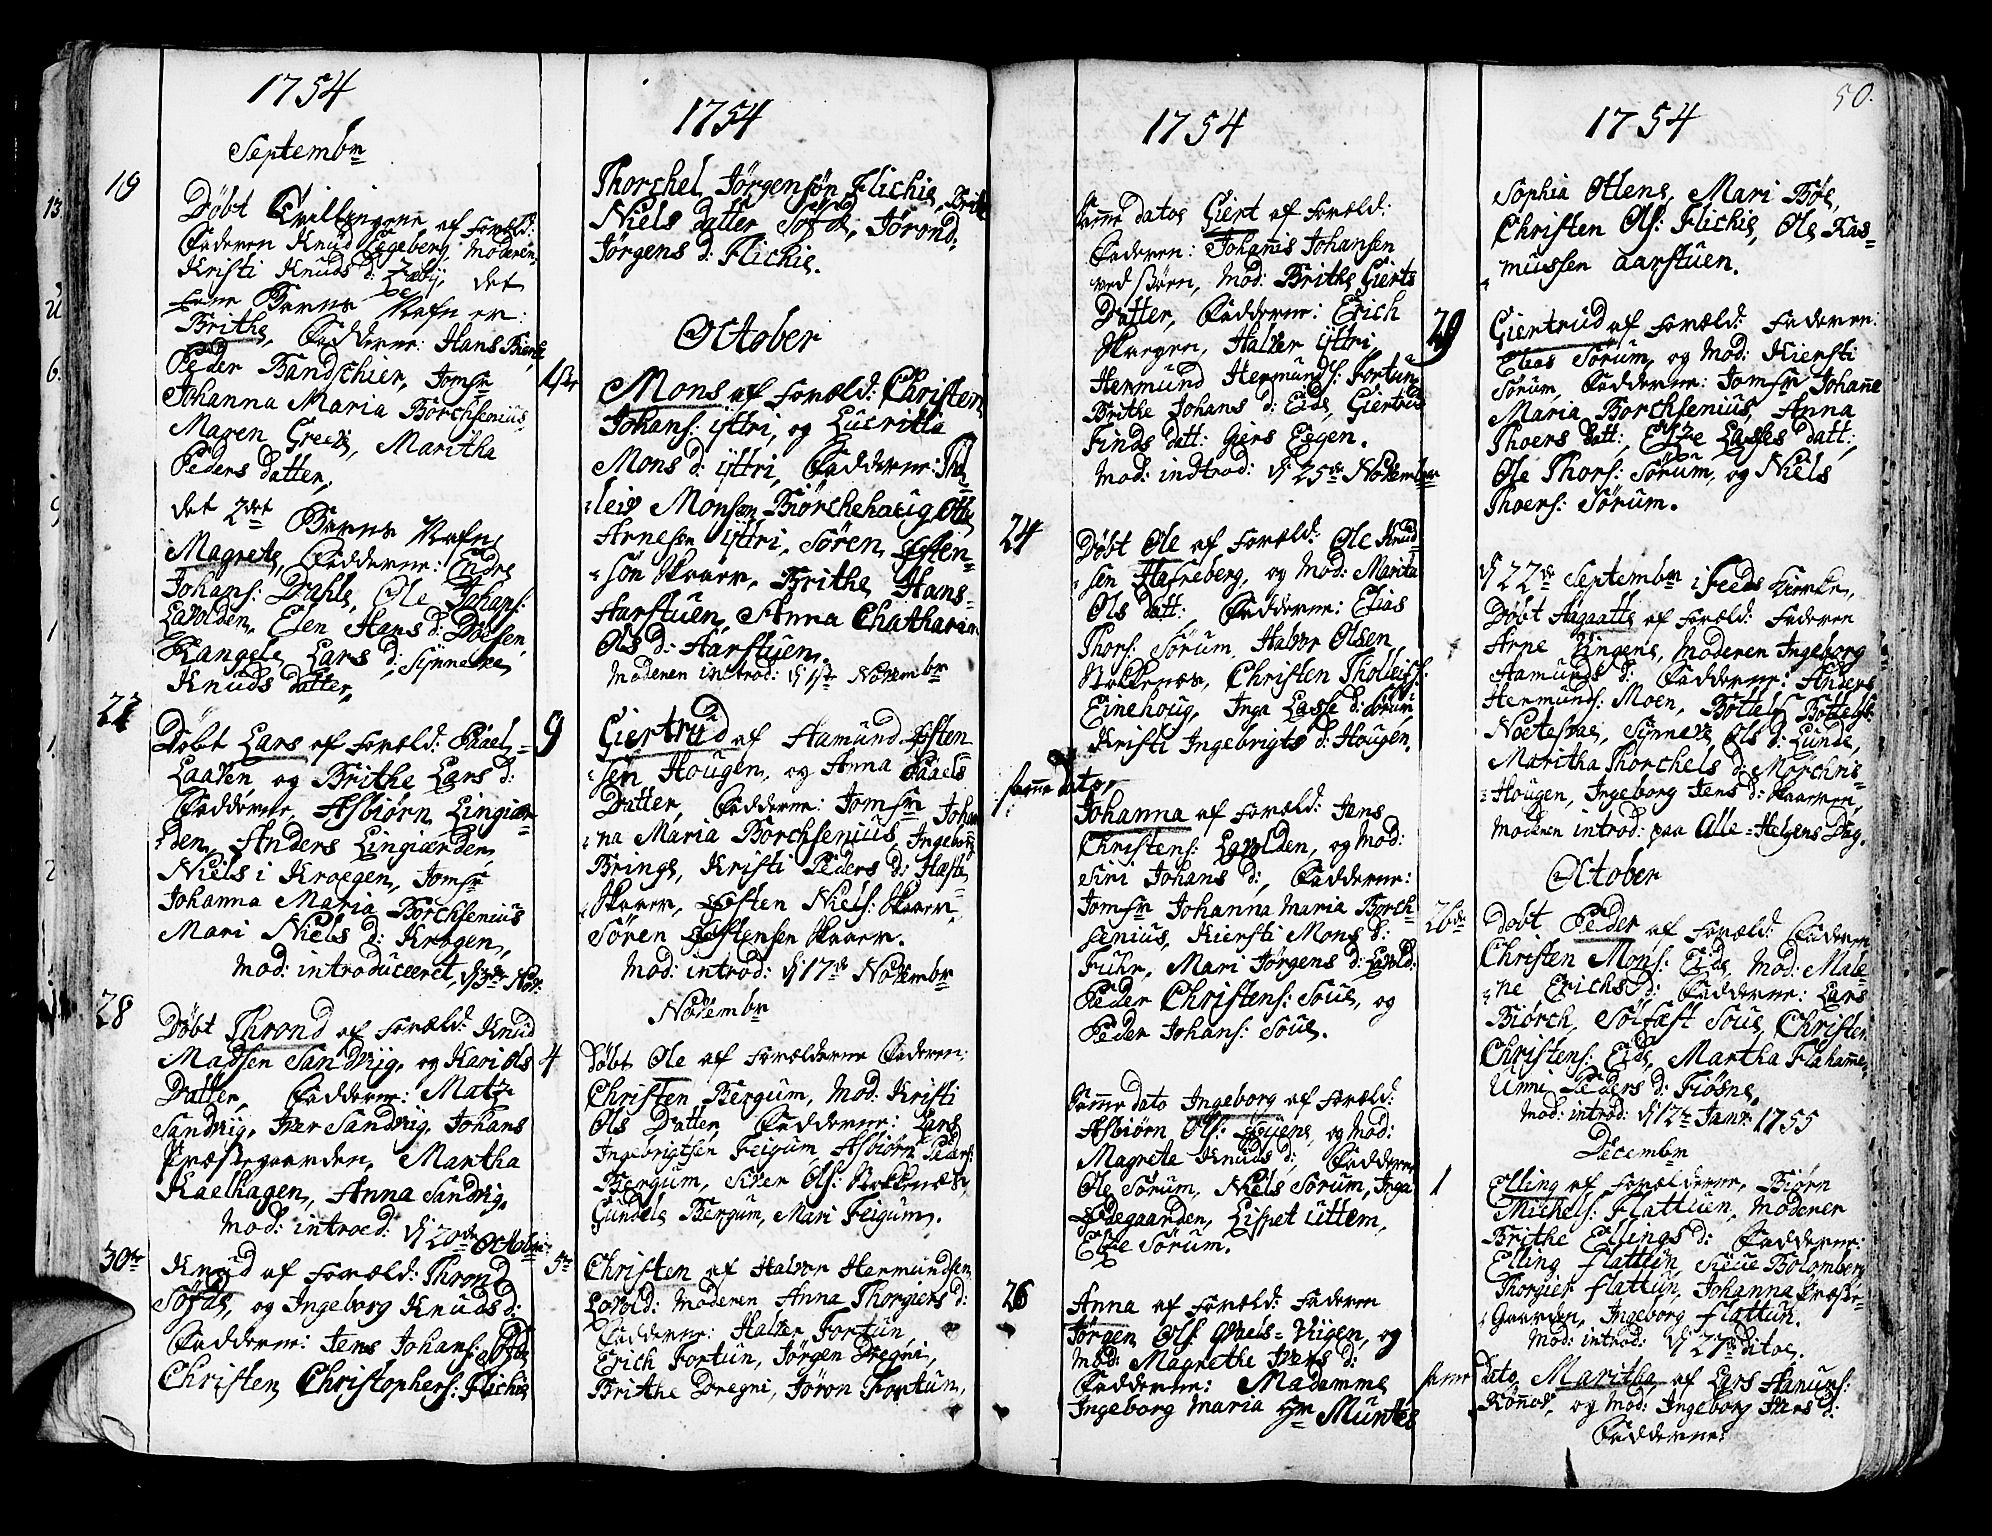 1754
Septembr
19
Døbt Tvillingene af Foræld:
Faderen Knud Eegeberg, Moderen
Kristi Knuds d: det
første Barns Nafn er:
Brithe, Fadderne: Hans
Peder Bandschier, Jomfr
Johanna Maria Borchsenius,
Maren Greeis, Maritha
Peders datter,
det 2det Barns Nafn
Magrete, Fadderne: Endre
Johans: Dahle, Ole Johans:
Lavolden, Elen Hans d: Døesen,
Rangele Lars d: Synneve
Knuds datter,
22
Døbt Lars af Foræld: Paael
Laaven og Brithe Lars d:
Fadderne, Asbiørn Lingiær-
den, Anders Lingiærden,
Niels i Kroegen, Jomfr
Johanna Maria Borchsenius
Mari Niels d: Krogen,
Mod: introduceeret, d 3de Nov:
28
Døbt Thrond af Foræld: Knud
Madsen Sandvig, og Kari Ols
Datter, Fadderne: Matz
Sandvig, Iver Sandvig, Johans
Præstegaarden, Martha
Kaelhagen, Anna Sandvig,
Mod: introd: d 20de Octobr:
30te
Knud af Foræld: Thrond
Sofde, og Ingeborg Knuds d:
Fadderne: Jens Johans:
Christen Christophers: Flichie
1754
Thorchel Jørgensøn Flichie, Brite
Niels datter Sofde, Jørond
Jørgens d: Flichie.
October
1ste
Mons af Foræld: Christen
Johans: ÿttri, og Lucritia
Mons d: ÿttri, Fadderne: Thol
leiv Monsen Biørchehaug Otte
Arnesøn ÿttri, Søren Østen-
søn Skaar, Brithe Hans-
Aarstuen, Anna Chatharin
Ols d: Aarstuen.
Moderen introd: d 1ste Novembr
9
Giertrud af Aamund Østen
sen Hougen, og Anna Paaels
Datter, Fadderne: Jomfr Johan
na Maria Borchsenius, Ingeborg
Brings, Kristi Peders d: Hæste
Skaar, Østen Niels: Skaar,
Søren Østensen Skaar.
Mod: introd: d 17de Novembr
Novembr
4
Døbt Ole af Forælderne Faderen:
Christen Bergum, Mod: Kristi
Ols Datter Fadderne: Lars
Ingebrigtsen Feigum, Asbiørn Peders:
Bergum, Siver Ols: Nokkenæs,
Gundele Bergum, Mari Feigum.
5te
Christen af Halvor Hermundsen
Lovold: Moderen Anna Thorgiers d:
Fadderne: Halvor Fortun,
Erich Fortun, Jørgen Dregni,
Brithe Dregni, Jøron Fortun,
1754
Samme datos Giert af Foræld:
Faderen: Johanis Johansen
ved siøen, Mod: Brithe Gierts
Datter, Fadderne: Erich
Skaegen, Halver ÿttri,
Hermund Hermunds: Fortun
Brithe Johans d: Eide, Giertrud
Finds datt: Giers Eegen.
Mod: indtrod: d 25de Novembr
24
Døbt Ole af Foræld: Ole Knud-
sen Hafreberg, og Mod: Marita
Ols datt: Fadderne: Elias
Thors: Sørum, Halvor Olsen
Nokkenæs, Christen Tholleifs:
Einehoug, Inga Lasse d: Sørum,
Kristi Ingebrigts d: Hougen.
samme dato,
Johanna af Foræld: Jens
Christens: Lavolden, og Mod:
Siri Johans d:, Fadderne:
Jomfr Johanna Maria Borch-
senius, Kiersti Mons d:
Fuhr, Mari Jørgens d: Lavold:
Peder Christens: Soue, og
Peder Johans: Soue.
Samme dato Ingeborg af Foræld:
Asbiørn Ols: Øyene, og Mod:
Magrete Knuds d:, Faddere
Ole Sørum, Niels Sørum, Inga
Ødegaarden, Lispet Uttem,
Elze Sørum.
26
Anna af Foræld: Faderen
Jørgen Ols: Qvaels-Viigen, og
Mod: Magrethe Ivers d:
Fadderne: Mademme
Ingeborg Maria Hr Muntes
50.
1754
Sophia Ottens, Mari Bøe,
Christen Ols: Flichie, Ole Ras-
mussen Aarstuen.
29
Giertrud af Foræld: Faderen:
Elias Sørum, og Mod: Kiersti
Sørum, Fadderne: Jomfr Johanne
Maria Borchsenius, Anna
Thoers datt:, Elze Lasses datt:,
Ole Thors: Sørum, og Niels
Thoers: Sørum.
d 22de Septembr i Feeds Kirke,
Døbt Aagaatte af Foræld: Faderen
Arne Ringene, Moderen Ingeborg
Aamunds d: Fadderne: Anders
Hermunds: Moen, Bottels Bottelgs:
Noetestræ, Synneve Ols d: Lunde,
Maritha Thorchels d: Mørchris-
Hougen, Ingeborg Jens d: Skaaren,
Moderen introd: paa Alle-Helgens Dag.
October
26de
Døbt Peder af Foræld: Faderen
Christen Mons: Eide, Mod: Male-
ne Erichs d: Fadderne: Lars
Biørch, Solfæst Soue, Christen
Christens: Eide, Martha Flahamme,
Unni Peders d: Fiøsne,
Mod: introd: d 12te Janr: 1755
Decembr
1
Elling af Forælderne, Biørn
Michels: Flattun, Moderen
Brithe Ellings d: Fadderne:
Elling Flattun, Sieue Bolomberg
Thorgier Flattun, Johanna Præste-
Gaarden, Ingeborg Flattun.
Mod: introd: d 27de ditoe,
samme Dato Maritha af Lars Hamuns:
Rønnoe, og Mod: Ingeborg Ivers d:
Fadderne: